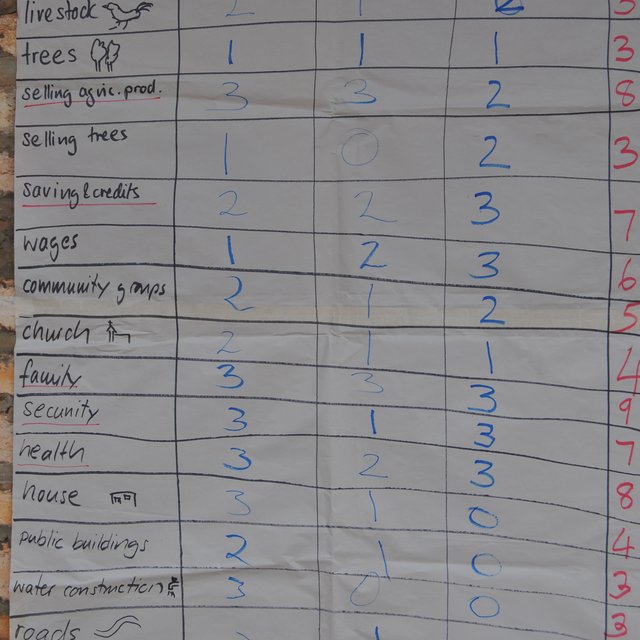 livestock 2 1 2 5
trees 1 1 1 3
selling agric. prod. 3 3 2 8
selling trees 1 0 2 3
saving & credits 2 2 3 7
wages 1 2 3 6
community groups 2 1 2 5
church 2 1 1 4
family 3 3 3 9
security 3 1 3 7
health 3 2 3 8
house 3 1 0 4
public buildings 2 1 0 3
water construction 3 0 0 3
roads 1